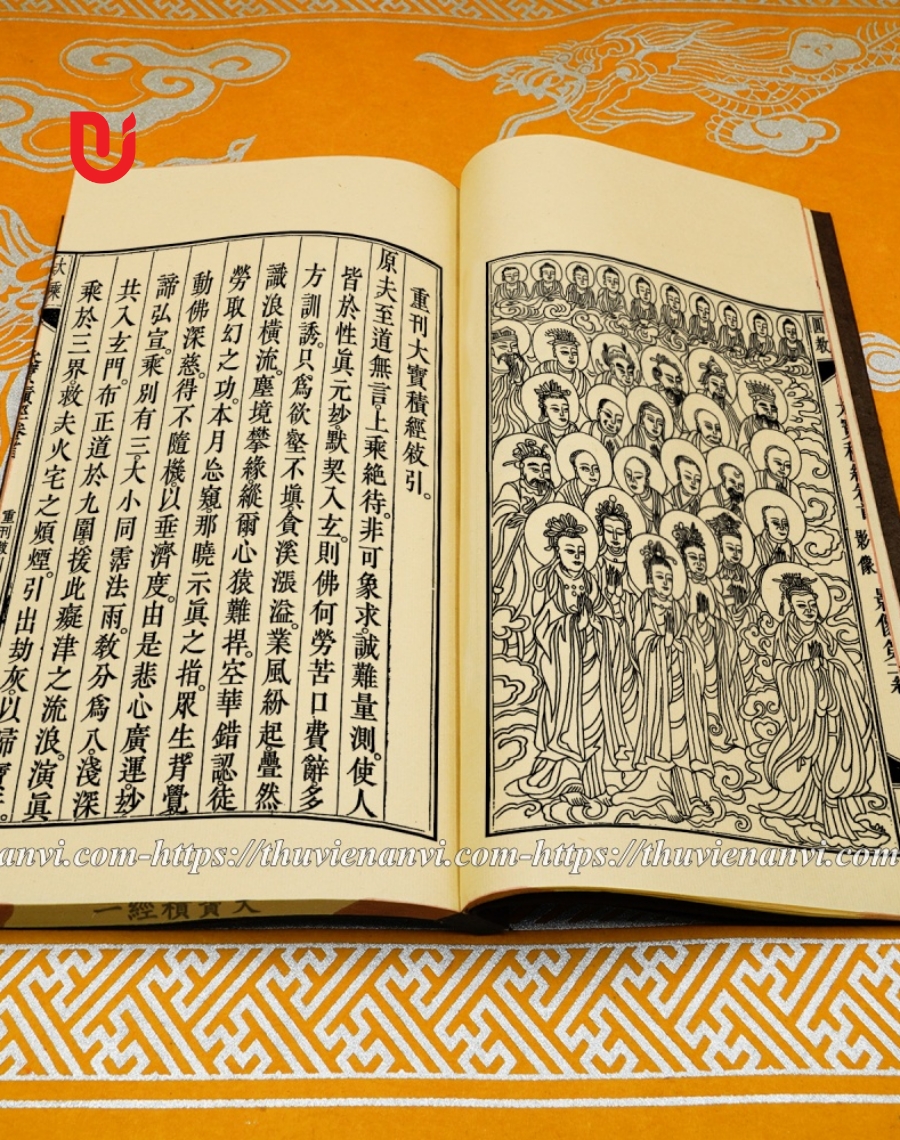 圓教
影像
重刊大寶積經敍引。
原夫至道無言。上乘絶待。非可象求。誠難量測。使人
皆於性眞。元玅默契入玄。則佛何勞苦口費辭多
方訓誘。只爲欲壑不塡。貪溪漲溢。業風紛起。疊然
識浪橫流。塵境攀緣。縱爾心猿難捍。空華錯認。徒
勞取幻之功。本月忩窺。那曉示眞之指。眾生背覺
動佛深慈。得不隨機以垂濟度。由是悲心廣運。玅
諦弘宣。乘別有三。大小同霑法雨。敎分爲八。淺深
共入玄門。布正道於九圍。援此癡津之流浪。演眞
乘於三界。救夫火宅之煩煙。引出劫灰。以
大乘
重刊
anvi.com-https://thuvienanvi.com-https://thuvienanvi.com-https://
大寶積經一